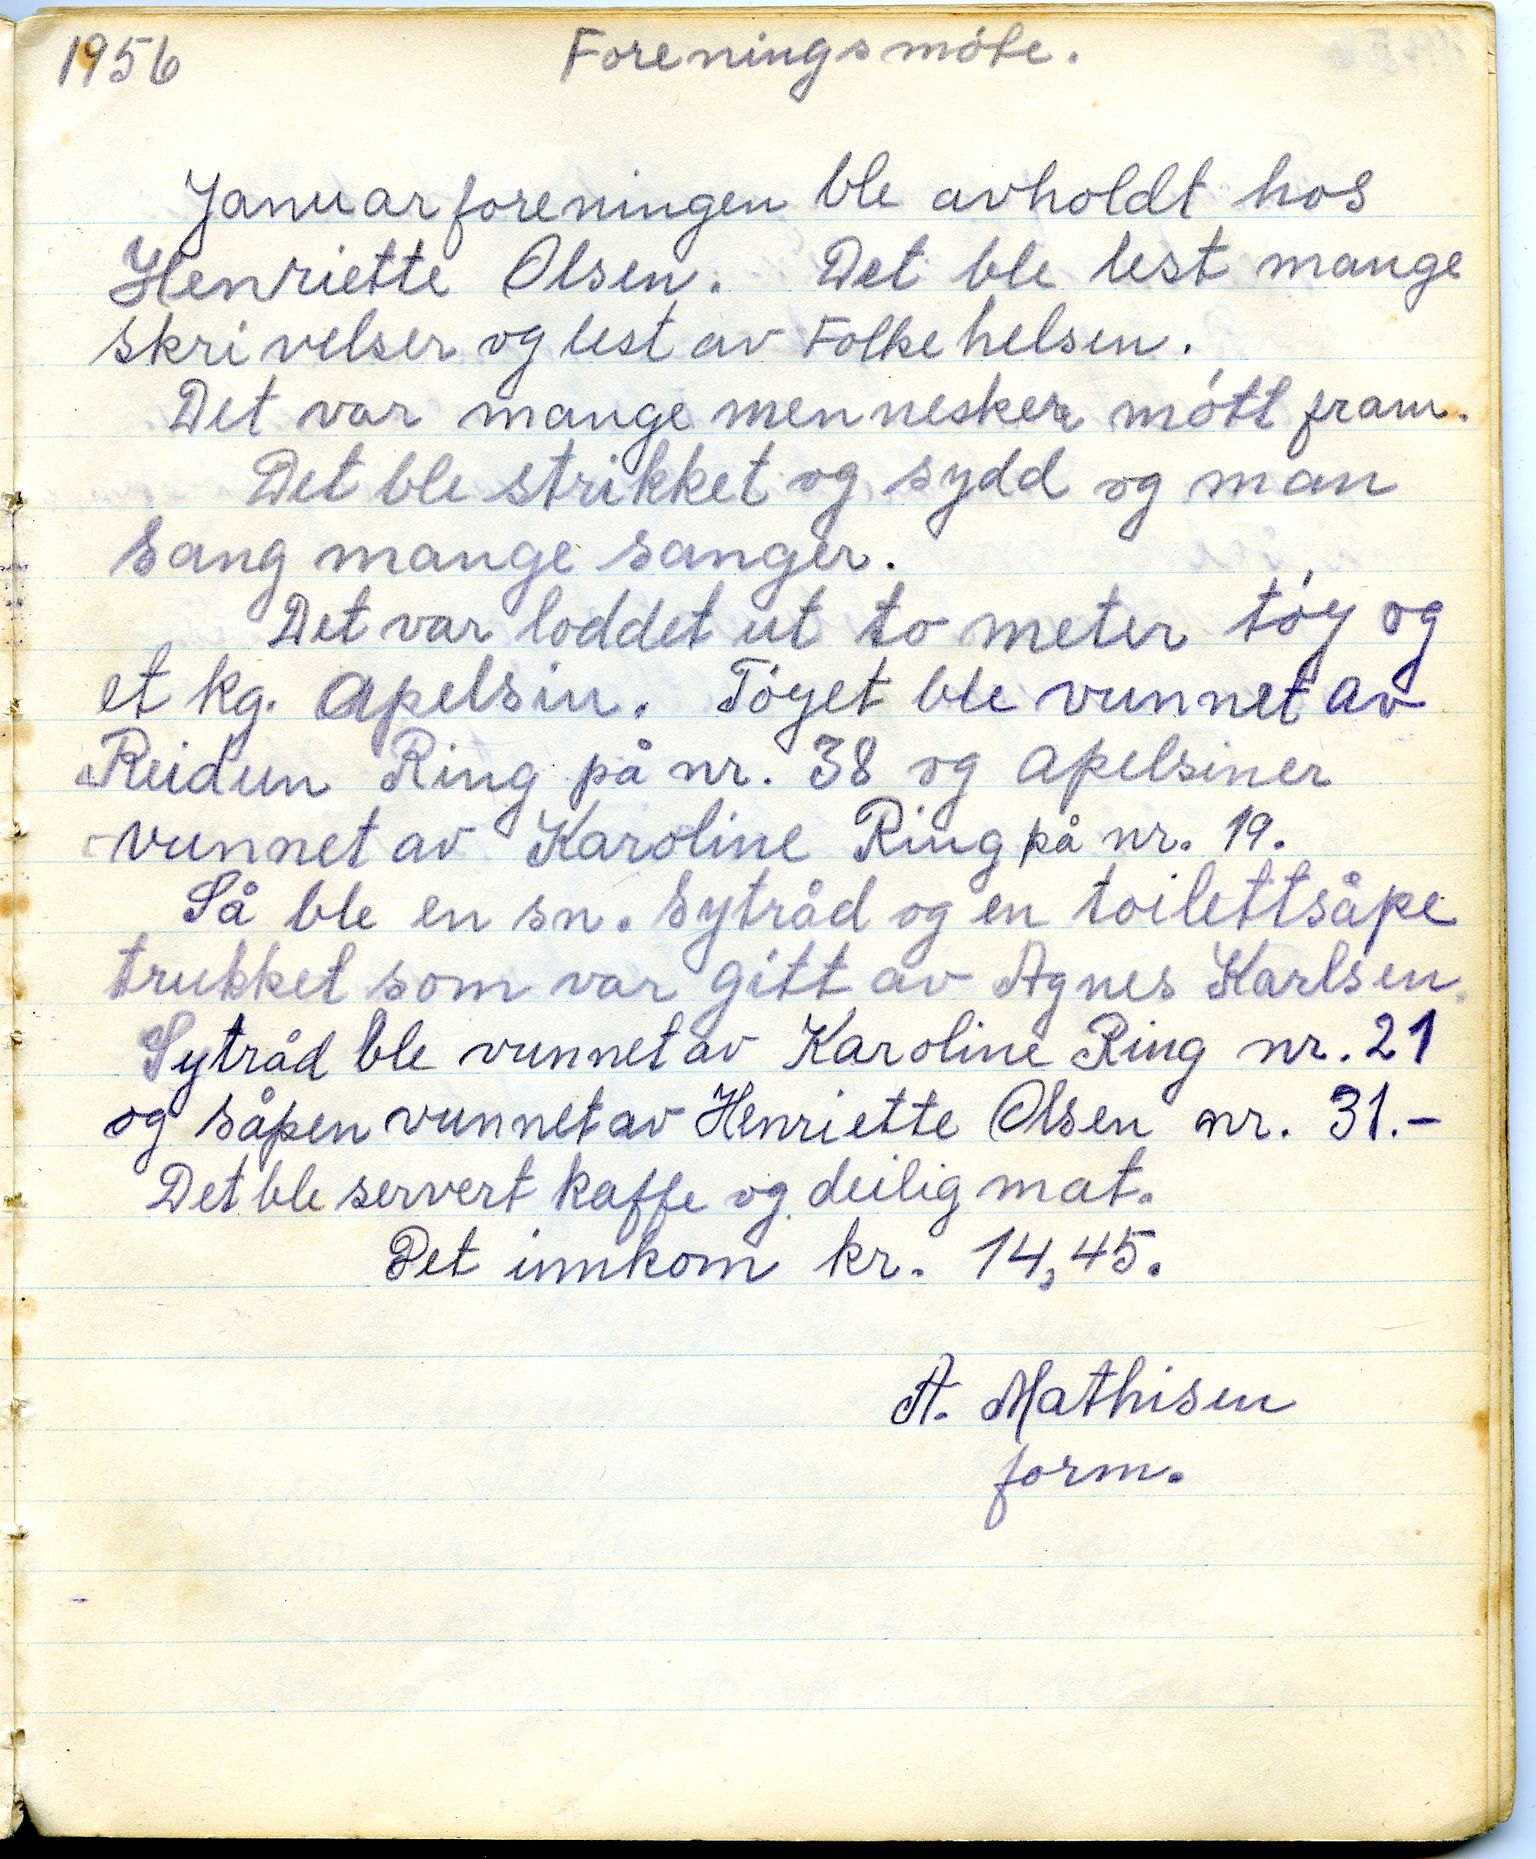 1956 Foreningsmóte.
Januarforeningen ble avholdt hos
Henriette Olsen. Det ble lest mange
skrivelser og lest av Folkehelsen.
Det var mange mennesker mótt fram.
Det ble strikket og sydd og man
sang mange sanger.
Det var loddet ut to meter tóy og
et kg. Apelsin. Tóyet ble vunnet av
Reidun Ring på nr. 38 og apelsiner
vunnet av Karoline Ring på nr. 19.
Så ble en sn. sytråd og en toilettsåpe
trukket som var gitt av Agnes Karlsen.
Sytråd ble vunnet av Karoline Ring nr. 21
og såpen vunnet av Henriette Olsen nr. 31.-
Det ble servert kaffe og deilig mat.
Det innkom kr. 14,45.
A. Mathisen
form.